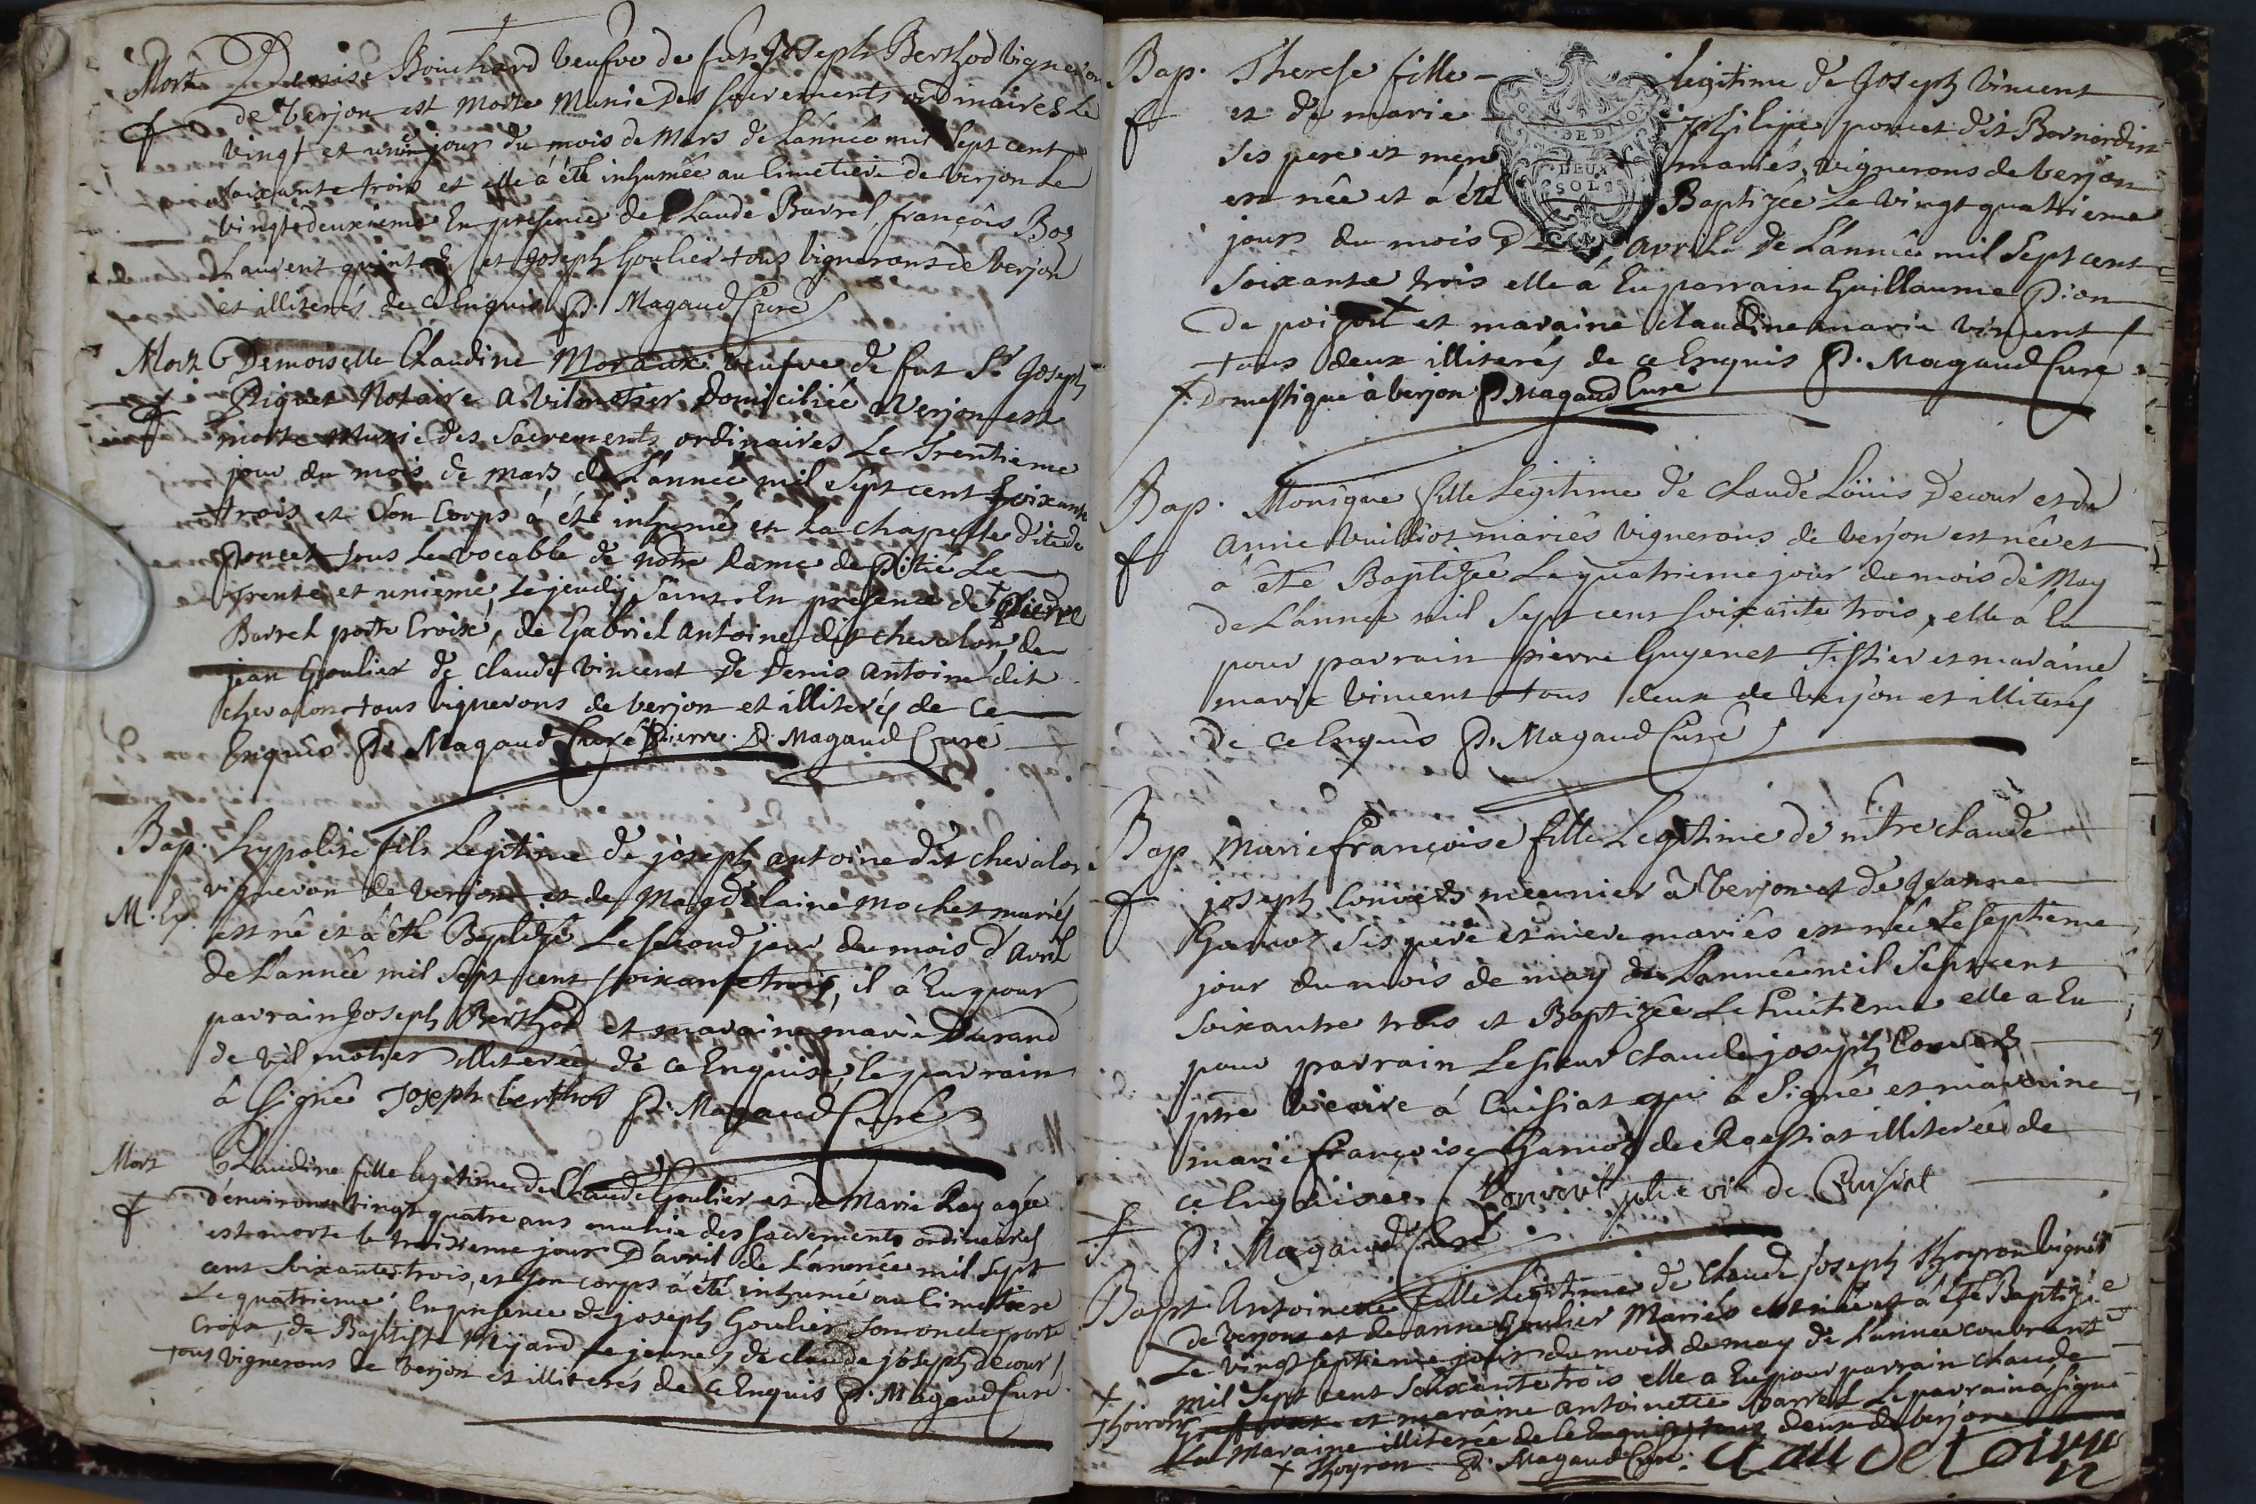 Mort Denise Bouchard veufve de fut Joseph Berthod vigneron
de verjon est morte munie des sacrements ordinaires Le
vingt et unieme jour du mois de Mars de L'année mil sept cent
soixante trois et elle á été inhumée au Cimetiere de verjon Le
vingtedeuxieme En présence de Claude Barrel, françois Boz
Laurent quintal et Joseph Goulier tous vignerons de verjon
et illiterés de ce Enquis P. Magaud Curé
Mort Demoiselle Claudine Moraux veufve de fut Sr Joseph
Piquet Notaire a vilmotier Domiciliée a Verjon est
morte munie des Sacrements ordinaires Le Trentieme
jour du mois de mars de L'année mil sept cent soixante
trois et Son Corps á été inhumé en La chapelle dite de
Poncet sous Le vocable de notre Dame de Pitié Le
Trente et unieme, Le jeudy Saint. En presence de Pierre
Barrel porte Croix, de Gabriel Antoine dit chevalon, de
jean Goulier de claude vincent De Denis antoine dit
chevalon tous vignerons de verjon et illiterés de ce
Enquis P. Magaud Curé Pierre. P. Magaud Curé
Bap. hypolite fils Legitime de joseph antoine dit chevalon
vigneron de verjon et de Magdelaine mochet mariés
M. Ep. est né et á été Baptizé Le second jour du mois d'avril
de L'année mil sept cent soixante trois, il á Eu pour
parrain Joseph Berthod et maraine marie Durand
de vilmotier illiterée de ce Enquise, le parrain
á Signé Joseph berthod P. Magaud Curé
Mort Claudine fille legitime de Claude Goulier et de Marie Ray agée
d'environ vingt quatre ans munie des sacrements ordinaires
est morte le troisieme jour D'avril de L'année mil sept
cent soixante trois, et son corps á été inhumé au Cimetiere
Le quatrieme, En presence de joseph Goulier son oncle porte
Croix, de Baptiste Mijard Le jeune, de claude joseph decour,
tous vignerons de verjon et illiterés de ce Enquis P. Magaud Curé
Bap. Therese fille legitime de Joseph vincent
et de marie philipe poncet dit Bernardin
ses pere et mere mariés, vignerons de verjon
est née et á été Baptizée Le vingt quatrieme
jour du mois D'avril de L'année mil sept cent
GEN. DE DIJON
DEUX
SOLS
soixante trois elle á Eu parrain Guillaume Pion
de poisoit et maraine claudine marie vincent +
tous deux illiterés de ce Enquis P. Magaud Curé
+ Domestique à verjon P. Magaud Curé
Bap. Monique fille Legitime de Claude Loüis Decour et de
anne vuillot mariés vignerons de verjon est née et
á été Baptizée Le quatrieme jour du mois de May
de L'année mil sept cent soixante trois, elle á Eu
pour parrain pierre Guyenet Tissier et maraine
marie vincent tous deux de verjon et illiterés
De ce Enquis P. Magaud Curé
Bap. Marie françoise fille Legitime de mtre claude
joseph Convers meunier à Verjon et de Jeanne
Gamoz ses pere et mere mariés est née Le septieme
jour du mois de may de L'année mil sept cent
soixante trois et Baptizée Le huitieme elle a Eu
pour parrain Le sieur claude joseph Convers
ptre vicaire á Cuisiat qui á Signé et maraine
marie françoise Gamoz de Roessiat illiterée de
ce Enquise. Convert ptre vic de Cuisiat
P. Magaud Curé
Bapt Antoinette fille Legitime de Claude joseph Thoyron vigneron
de verjon et de anne Goulier Mariés est née et á été Baptizée
Le vingt septieme jour du mois de may de L'année courrent
mil sept cent soixante trois elle a Eu pour parrain claude
+ Thoiron et maraine antoinette Barrel Le parrain á signé
La Maraine illiterée de ce Enquise tous deux de verjon
+ Thoyron P. Magaud Curé. claude toiron